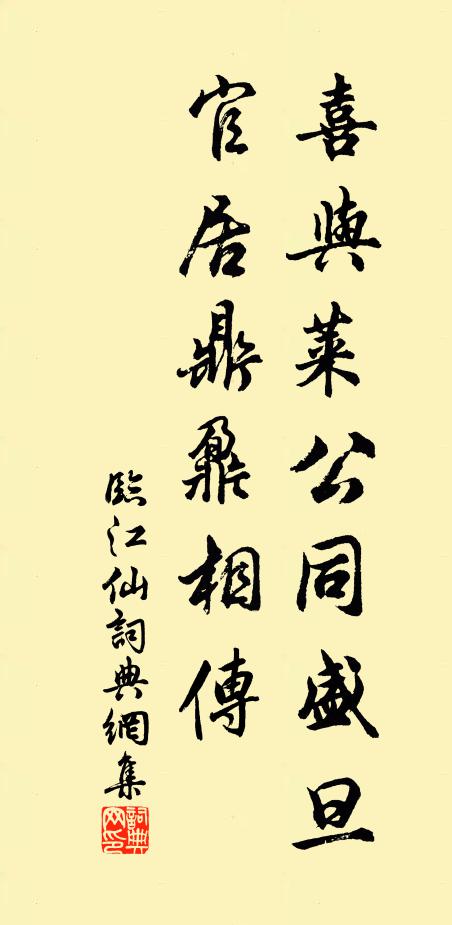 喜與萊公同盛旦
官居鼎鼐相傳
臨江仙詞典網集
詞典網印